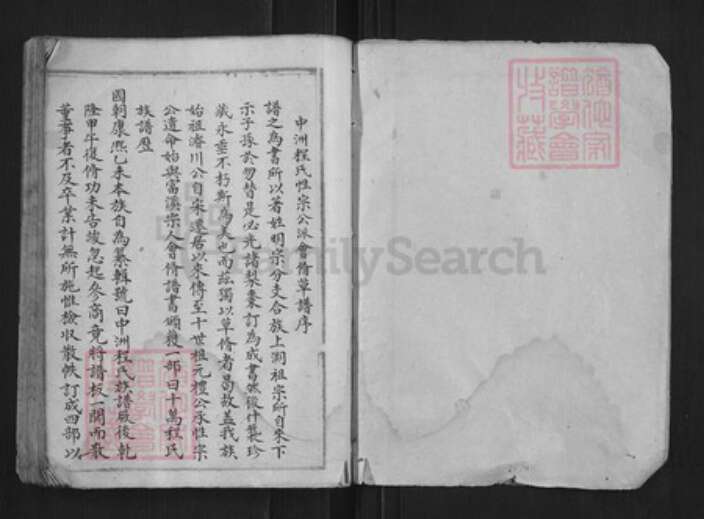 中洲程氏性宗公派會脩草譜序
譜之為書所以著姓明宗分支合族上溯祖宗所自來下
示子孫於勿替是必先諸梨棗訂為成書然後什襲珍
藏永垂不朽斯為美也而茲獨以草脩者曷故蓋我族
始祖濬川公自宋遷居以來傳至十世祖元禮公承性宗
公遺命始與富溪宗人會脩譜書頒發一部曰十萬程氏
族譜歷
國朝康熙乙未本族自為纂輯號曰中洲程氏族譜厥後乾
隆甲午復脩功未告竣忽起參商竟將譜板一鬨而散
董事者不及卒業計無所施惟檢收散帙訂成四部以
譜學會
收藏
FamilySearch